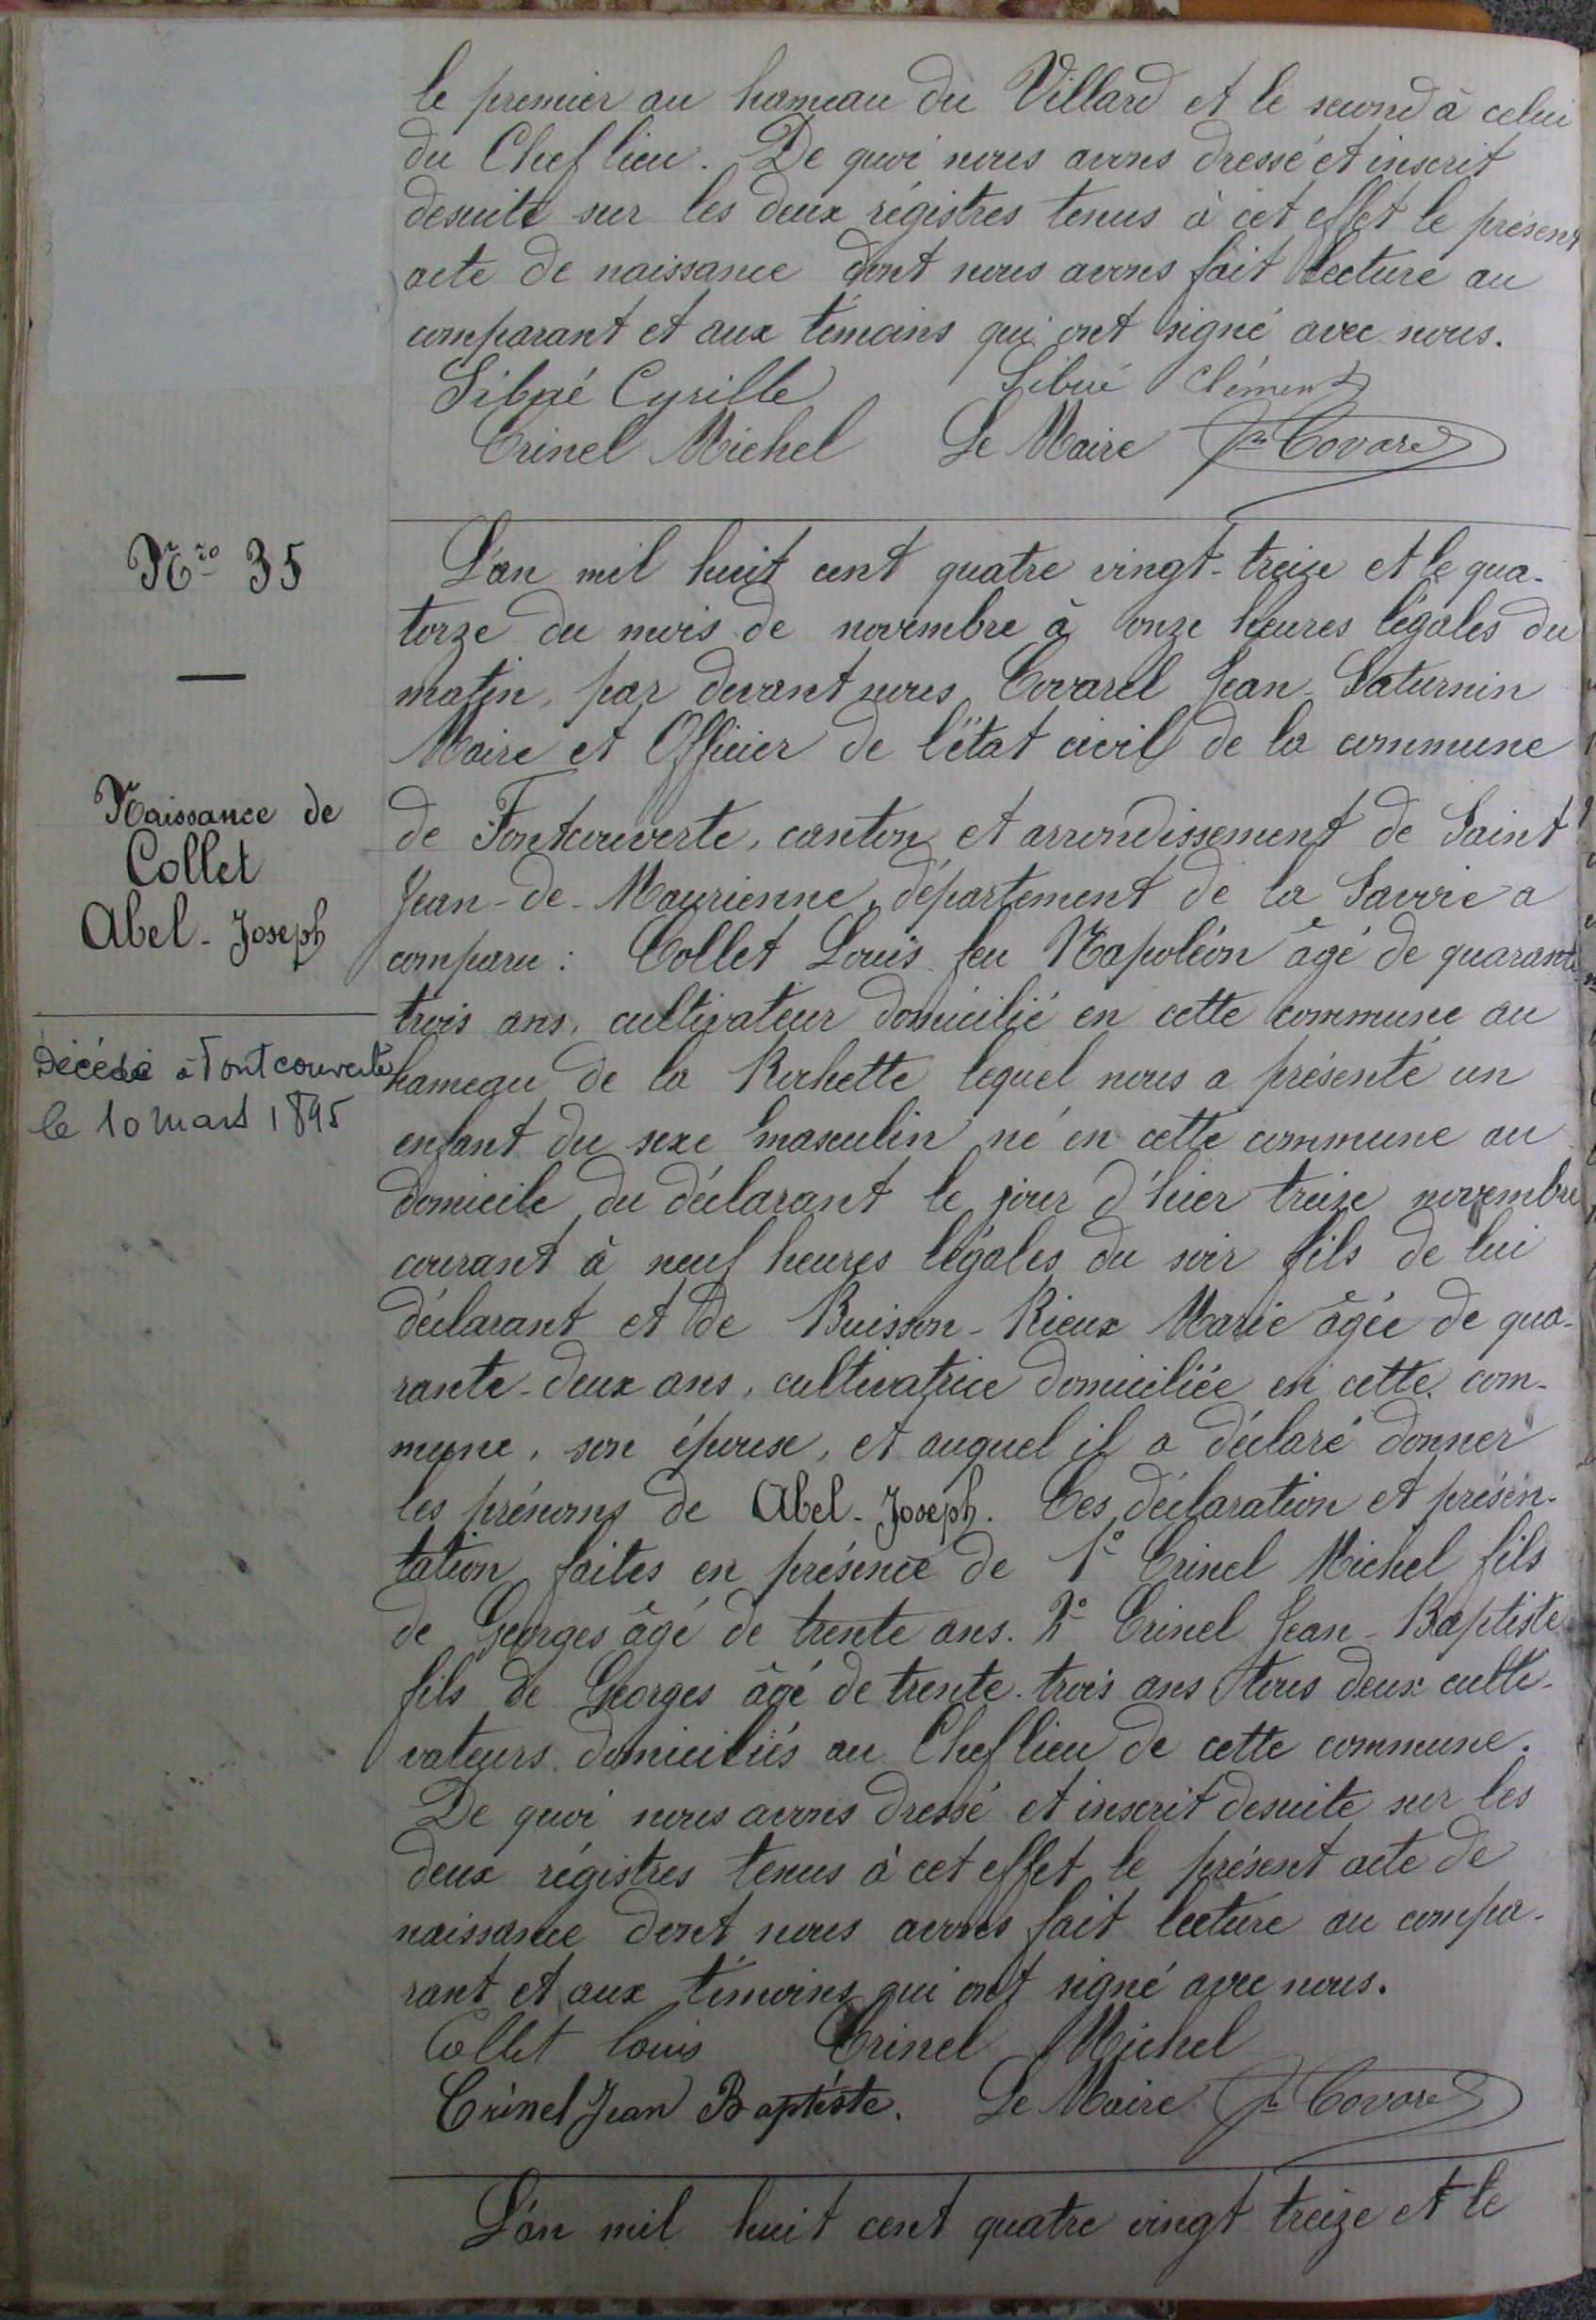 le premier au hameau du Villard et le second à celui
du Cheflieu. De quoi nous avons dressé et inscrit
desuite sur les deux régistres tenus à cet effet le présent
acte de naissance dont nous avons fait lecture au
comparant et aux témoins qui ont signé avec nous.
Sibué Cyrille Sibué Clément
Crinel Michel Le Maire Covarel
Nro 35
Naissance de
Collet
Abel-Joseph
Décédé à Fontcouverte
le 10 mars 1895
L'an mil huit cent quatre vingt-treize et le qua-
torze du mois de novembre à onze heures légales du
matin, par devant nous Covarel Jean-Saturnin
Maire et Officier de l'état civil de la commune
de Fontcouverte, canton et arrondissement de Saint
Jean-de-Maurienne, département de la Savoie a
comparu : Collet Louis feu Napoléon âgé de quarante
trois ans, cultivateur domicilié en cette commune au
hameau de la Rochette lequel nous a présenté un
enfant du sexe masculin né en cette commune au
domicile du déclarant le jour d'hier treize novembre
courant à neuf heures légales du soir fils de lui
déclarant et de Buisson-Rieux Marie âgée de qua-
rante-deux ans, cultivatrice domiciliée en cette com-
mune, son épouse, et auquel il a déclaré donner
les prénoms de Abel-Joseph. Ces déclaration et présen-
tation faites en présence de 1° Crinel Michel fils
de Georges âgé de trente ans. 2° Crinel Jean-Baptiste
fils de Georges âgé de trente-trois ans tous deux culti-
vateurs domiciliés au Cheflieu de cette commune.
De quoi nous avons dressé et inscrit desuite sur les
deux régistres tenus à cet effet le présent acte de
naissance dont nous avons fait lecture au compa-
rant et aux témoins qui ont signé avec nous.
Collet Louis Crinel Michel
Crinel Jean Baptiste. Le Maire Covarel
L'an mil huit cent quatre vingt treize et le